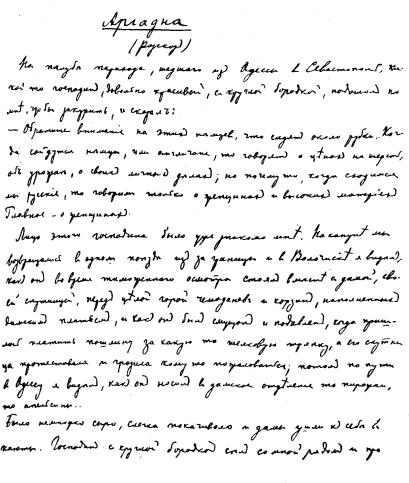 Аріадна
(Разсказ)
На палубѣ парохода, шедшаго из Одессы в Севастополь, ка-
кой то господин, довольно красивый, с круглой бородкой, подошел ко
мнѣ, чтобы закурить, и сказал:
— Обратите вниманіе на этих нѣмцев, что сидят около рубки. Ког-
да сойдутся нѣмцы, или англичане, то говорят о цѣнах на шерсть,
об урожаѣ, о своих личных дѣлах; но почему то, когда сходимся
мы русскіе, то говорим только о женщинах и высоких матеріях.
Главное – о женщинах.
Лицо этого господина было уже знакомо мнѣ. Наканунѣ мы
возвращались в одном поѣздѣ из за границы и в Волочискѣ я видѣл,
как он во время таможеннаго осмотра стоял вмѣстѣ с дамой, сво-
ей спутницей, перед цѣлой горой чемоданов и корзин, наполненных
дамским платьем, и как он был смущен и подавлен, когда приш-
лось платить пошлину за какую то шелковую тряпку, а его спутни-
ца протестовала и грозила кому то пожаловаться; потом по пути
в Одессу я видѣл, как он носил в дамское отдѣленіе то пирожки,
то апельсины..
Было немножко сыро, слегка покачивало и дамы ушли к себѣ в
каюты. Господин с круглой бородкой сѣл со мной рядом и про